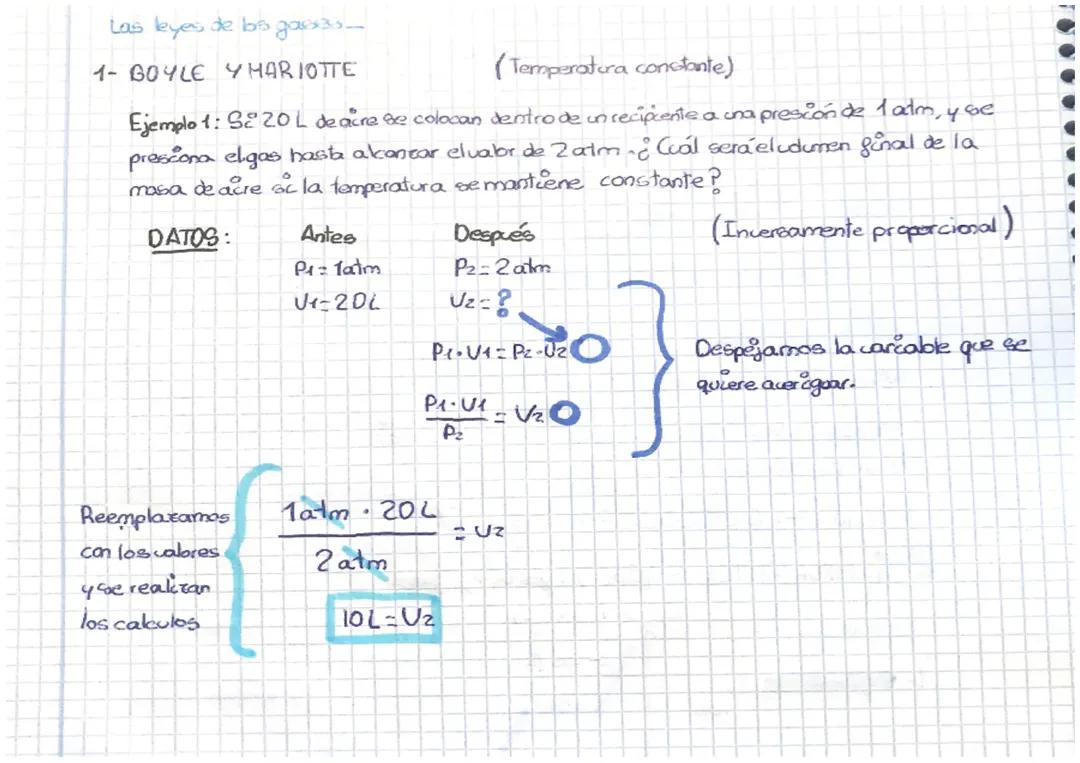 Las leyes de los gases
1- BOYLE Y MARIOTTE (Temperatura constante)
Ejemplo 1: Si 20 L de aire se colocan dentro de un recipiente a una presión de 1 atm, y se
presiona el gas hasta alcanzar el valor de 2 atm. ¿Cuál será el volumen final de la
masa de aire si la temperatura se mantiene constante?
DATOS: Antes Después (Inversamente proporcional)
P1 = 1 atm P2 = 2 atm
V1 = 20 L V2 = ?
P1 · V1 = P2 · V2
Despejamos la variable que se
quiere averiguar.
P1 · V1 / P2 = V2
Reemplazamos
con los valores
y se realizan
los calculos
1 atm · 20 L / 2 atm = V2
10 L = V2